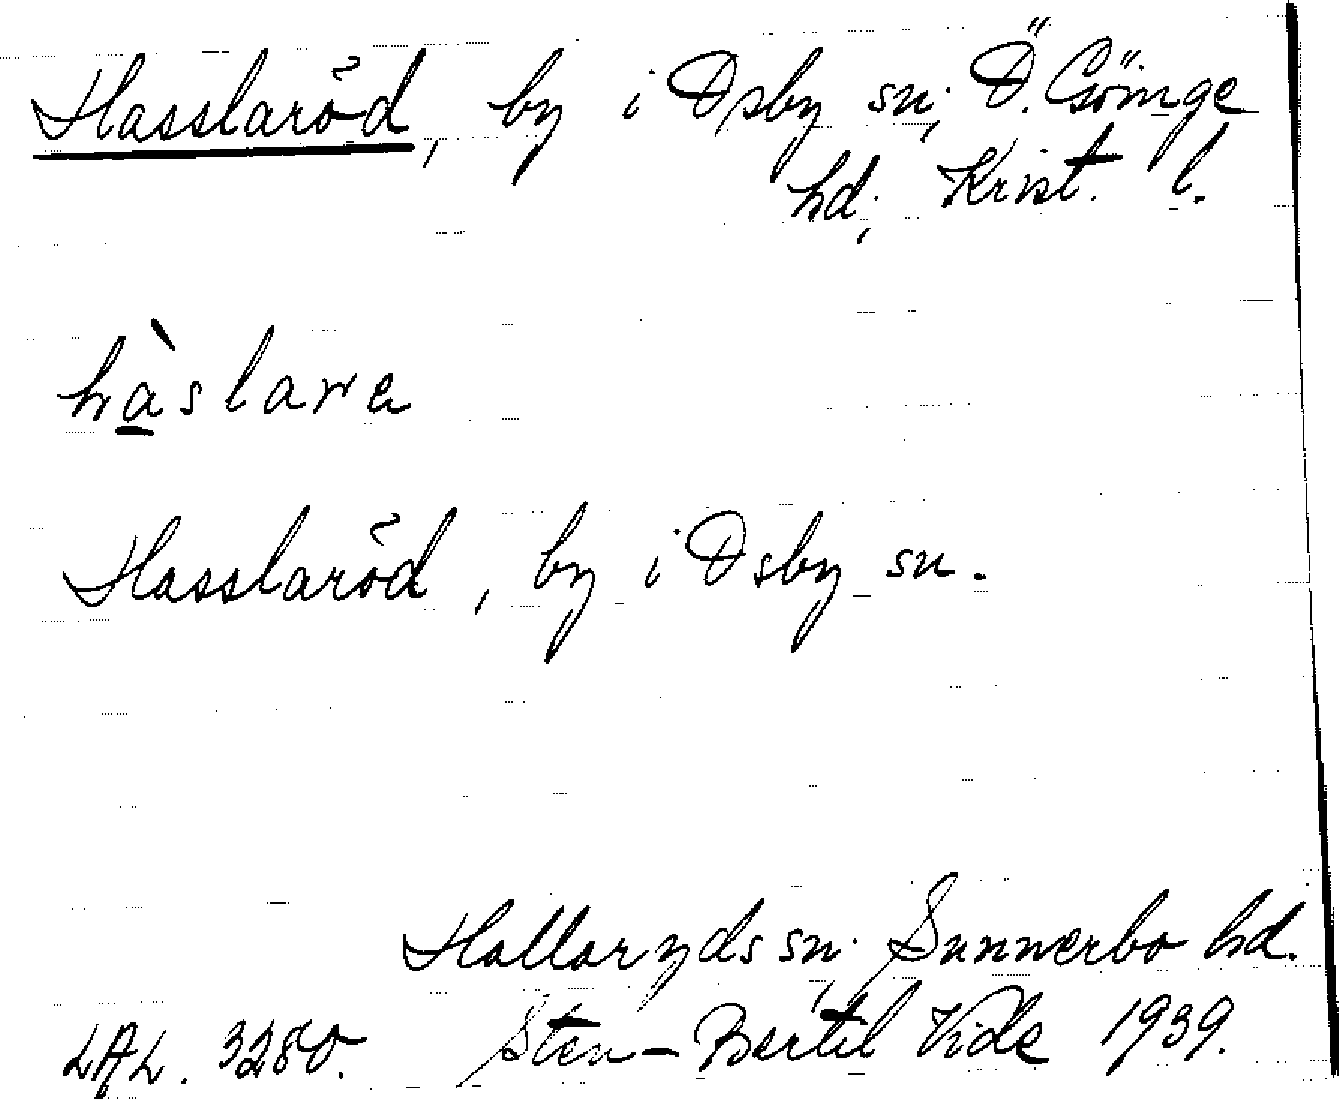 Hasslaröd, by i Osby sn; Ö. Göinge
hd; Krist. l.
hàslara
Hasslaröd, by i Osby sn.
Hallaryds sn; Sunnerbo hd.
LAL. 3280. Sten-Bertil Vide 1939.